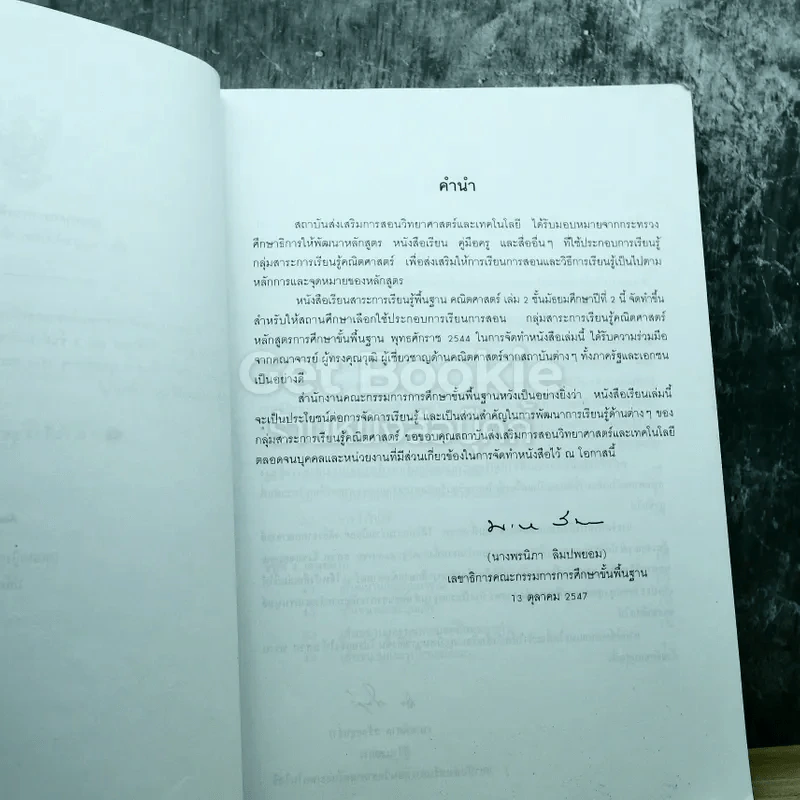 คำนำ
สถาบันส่งเสริมการสอนวิทยาศาสตร์และเทคโนโลยี ได้รับมอบหมายจากกระทรวง
ศึกษาธิการให้พัฒนาหลักสูตร หนังสือเรียน คู่มือครู และสื่ออื่นๆ ที่ใช้ประกอบการเรียนรู้
กลุ่มสาระการเรียนรู้คณิตศาสตร์ เพื่อส่งเสริมให้การเรียนการสอนและวิธีการเรียนรู้เป็นไปตาม
หลักการและจุดหมายของหลักสูตร
หนังสือเรียนสาระการเรียนรู้พื้นฐาน คณิตศาสตร์ เล่ม 2 ชั้นมัธยมศึกษาปีที่ 2 นี้ จัดทำขึ้น
สำหรับให้สถานศึกษาเลือกใช้ประกอบการเรียนการสอน กลุ่มสาระการเรียนรู้คณิตศาสตร์
หลักสูตรการศึกษาขั้นพื้นฐาน พุทธศักราช 2544 ในการจัดทำหนังสือเล่มนี้ ได้รับความร่วมมือ
จากคณาจารย์ ผู้ทรงคุณวุฒิ ผู้เชี่ยวชาญด้านคณิตศาสตร์จากสถาบันต่างๆ ทั้งภาครัฐและเอกชน
เป็นอย่างดี
Get Bookie
สำนักงานคณะกรรมการการศึกษาขั้นพื้นฐานหวังเป็นอย่างยิ่งว่า หนังสือเรียนเล่มนี้
จะเป็นประโยชน์ต่อการจัดการเรียนรู้ และเป็นส่วนสำคัญในการพัฒนาการเรียนรู้ด้านต่างๆ ของ
กลุ่มสาระการเรียนรู้คณิตศาสตร์ ขอขอบคุณสถาบันส่งเสริมการสอนวิทยาศาสตร์และเทคโนโลยี
ตลอดจนบุคคลและหน่วยงานที่มีส่วนเกี่ยวข้องในการจัดทำหนังสือไว้ ณ โอกาสนี้
(นางพรนิภา ลิมปพยอม)
เลขาธิการคณะกรรมการการศึกษาขั้นพื้นฐาน
13 ตุลาคม 2547